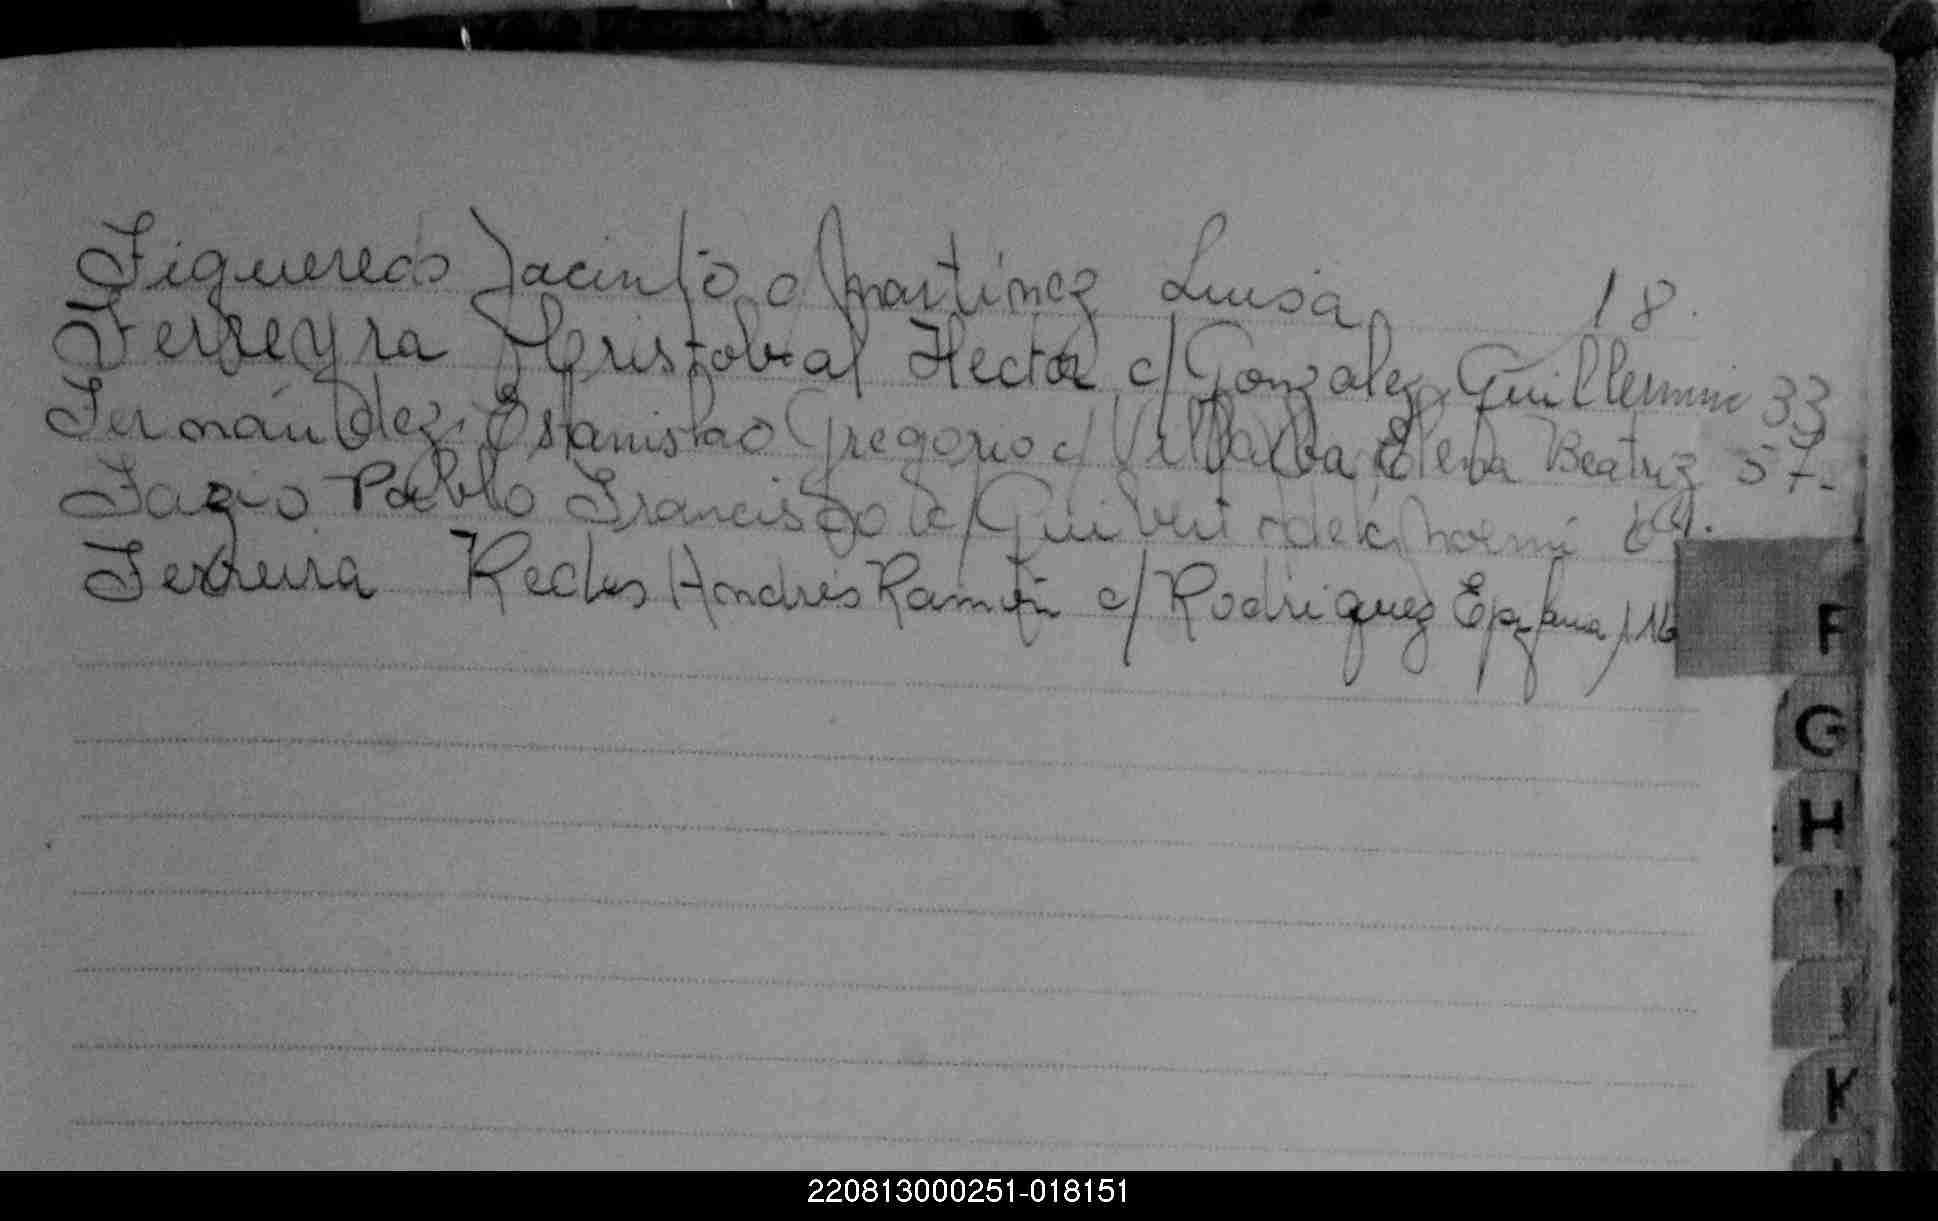 Figueredo Jacinto c Martinez Luisa 18.
Ferreyra Cristobal Hector c/ Gonzalez Guillermina 33
Fernández Estanislao Gregorio c/ Villalba Elena Beatriz 57.
Fazio Pablo Francisco c/ Guibert Noemi
Ferreira Andrés Ramón c/ Rodriguez 116
F
G
H
I
J
K
220813000251-018151